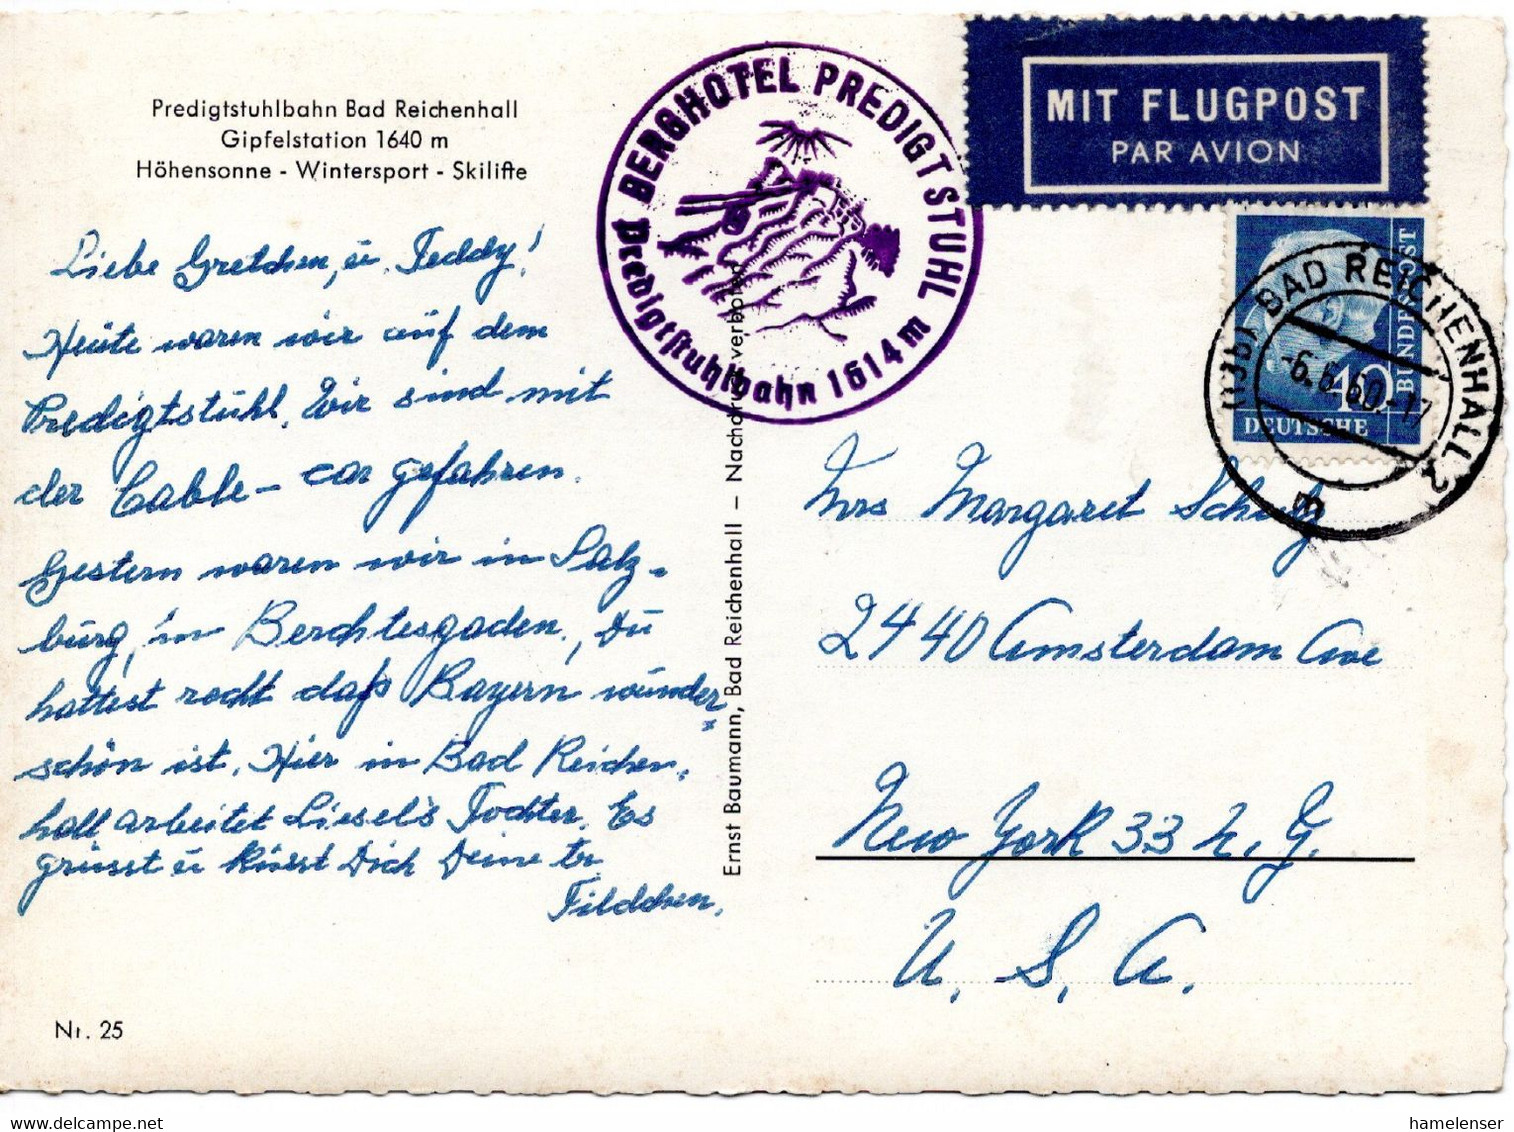 Predigtstuhlbahn Bad Reichenhall
Gipfelstation 1640 m
Höhensonne - Wintersport - Skilifte
Liebe Gretchen, u. Teddy!
Heute waren wir auf dem
Predigtstuhl. Wir sind mit
der Cable-car gefahren.
Gestern waren wir in Salz-
burg, in Berchtesgaden, Du
hattest recht daß Bayern wunder=
schön ist. Hier in Bad Reichen-
hall arbeitet Liesel's Tochter. Es
grüsst u küsst Dich Deine tr.
Nr. 25
BERGHOTEL PREDIGTSTUHL
Predigtstuhlbahn 1614 m
Ernst Baumann, Bad Reichenhall – Nachdruck verboten
MIT FLUGPOST
PAR AVION
DEUTSCHE
BUNDESPOST
40
BAD REICHENHALL 2
-6.6.60.-17
Mrs Margaret Schulz
2440 Amsterdam Ave
New York 33 N.Y.
U. S. A.
delcampe.net
hamelenser